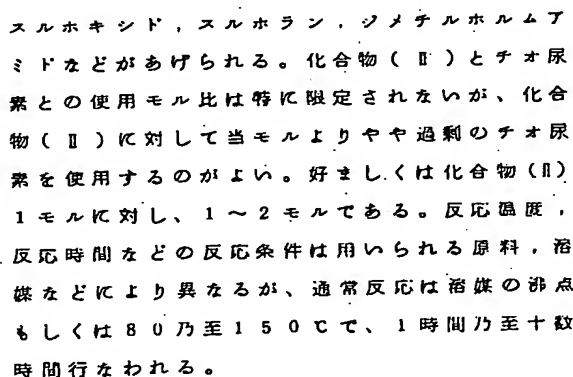 スルホキシド，スルホラン，ジメチルホルムア
ミドなどがあげられる。化合物（Ⅱ）とチオ尿
素との使用モル比は特に限定されないが、化合
物（Ⅱ）に対して当モルよりやや過剰のチオ尿
素を使用するのがよい。好ましくは化合物(Ⅱ)
1モルに対し、1～2モルである。反応温度，
反応時間などの反応条件は用いられる原料，溶
媒などにより異なるが、通常反応は溶媒の沸点
もしくは80乃至150℃で、1時間乃至十数
時間行なわれる。